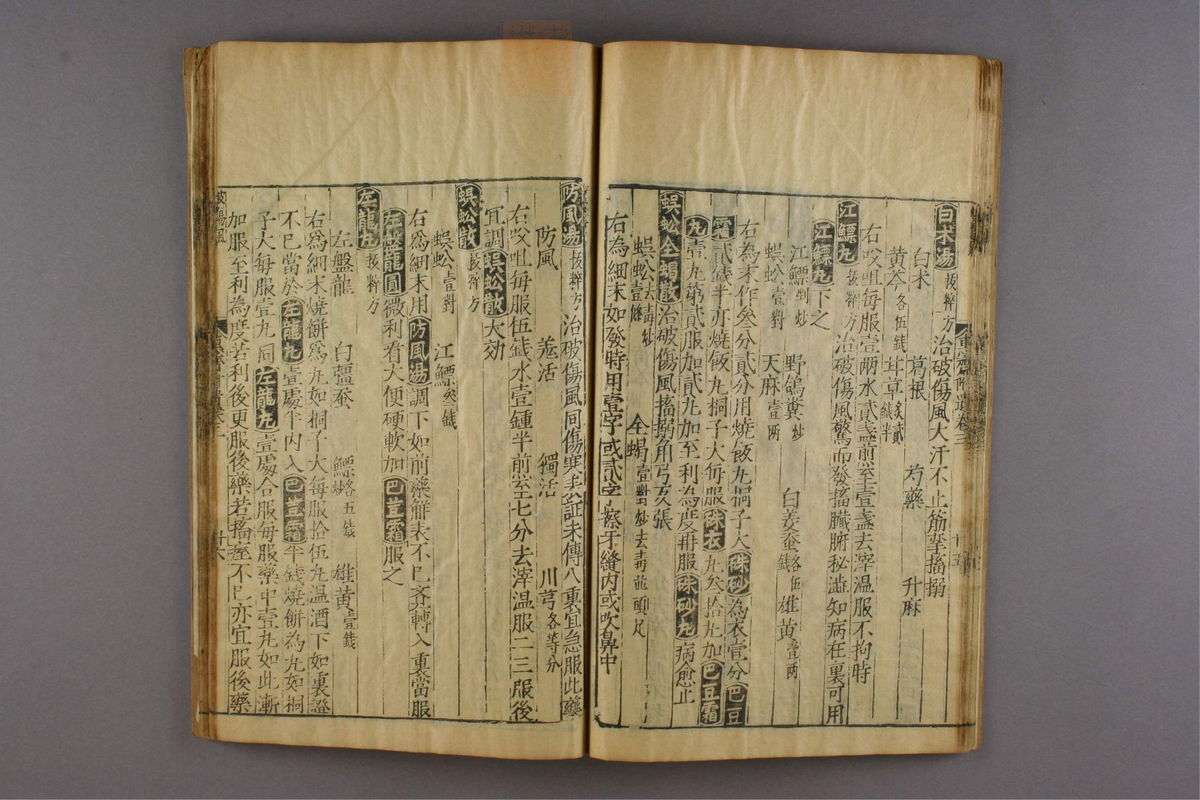 白朮湯 拔粹方 治破傷風大汗不止筋攣搐搦
白朮 葛根 芍藥 升麻
黃芩各伍錢 甘草貳錢半
右㕮咀每服壹兩水貳盞煎至壹盞去滓温服不拘時
江鰾丸 拔粹方 治破傷風驚而發搐臟腑秘澁知病在裏可用
江鰾丸下之
江鰾剉炒 野鴿糞炒 白姜蚕各伍錢 雄黄壹两
蜈蚣壹對 天麻壹两
右為末作叄分貳分用燒飯丸桐子大硃砂為衣壹分巴豆
霜貳錢半亦燒飯丸桐子大每服硃衣丸叄拾丸加巴豆霜
丸壹丸第貳服加貳丸加至利為度再服硃砂丸病愈止
蜈蚣全蝎散 治破傷風搐搦角弓反張
蜈蚣壹條去毒炒 全蝎壹對炒去毒並頭足
右為細末如發時用壹字或貳字擦牙縫内或吹鼻中
防風湯 拔粹方 治破傷風同傷寒表証未傳入裏宜急服此藥
防風 羗活 獨活 川芎各等分
右㕮咀每服伍錢水壹鍾半煎至七分去滓温服二三服後
冝調蜈蚣散大効
蜈蚣散 拔粹方
蜈蚣壹對 江鰾叄錢
右爲細末用防風湯調下如前藥觧表不已乃轉入裏當服
左盤龍圓微利看大便硬軟加巴荳霜服之
左龍丸 拔粹方
左盤龍 白彊蚕 鰾炒各五錢 雄黄壹錢
右爲細末燒餅爲丸如桐子大每服拾伍丸温酒下如裏證
不已當於左龍丸壹處半内入巴荳霜半錢燒餅為丸如桐
子大每服壹丸同左龍丸壹處合服每服藥中壹丸如此漸
加服至利為度若利後更服後藥若搐痓不已亦宜服後藥